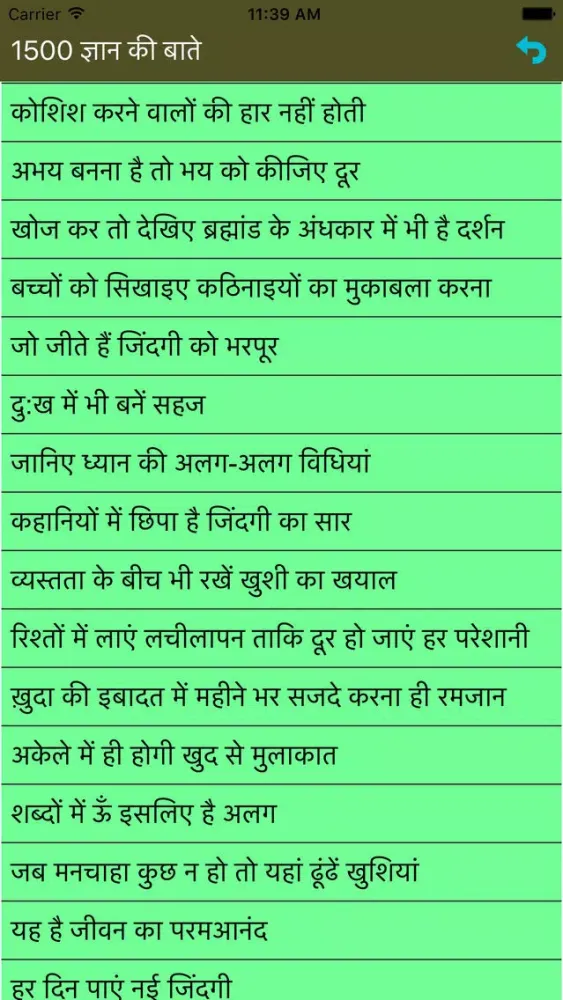 Carrier 11:39 AM
1500 ज्ञान की बाते
कोशिश करने वालों की हार नहीं होती
अभय बनना है तो भय को कीजिए दूर
खोज कर तो देखिए ब्रह्मांड के अंधकार में भी है दर्शन
बच्चों को सिखाइए कठिनाइयों का मुकाबला करना
जो जीते हैं जिंदगी को भरपूर
दु:ख में भी बनें सहज
जानिए ध्यान की अलग-अलग विधियां
कहानियों में छिपा है जिंदगी का सार
व्यस्तता के बीच भी रखें खुशी का खयाल
रिश्तों में लाएं लचीलापन ताकि दूर हो जाएं हर परेशानी
ख़ुदा की इबादत में महीने भर सजदे करना ही रमजान
अकेले में ही होगी खुद से मुलाकात
शब्दों में ऊँ इसलिए है अलग
जब मनचाहा कुछ न हो तो यहां ढूंढें खुशियां
यह है जीवन का परमआनंद
हर दिन पाएं नई जिंदगी